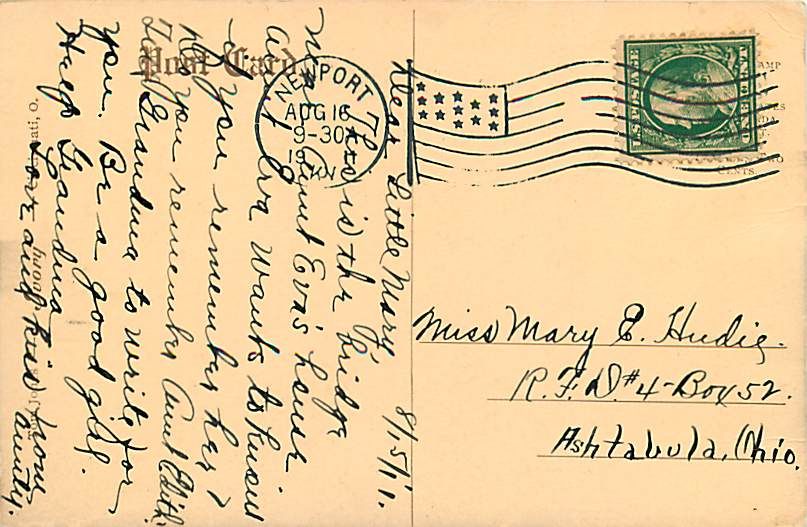 Post Card
NEWPORT
AUG 16
9-30
KY.
U.S. POSTAGE
CENTS.
8/15/11.
Dear Little Mary
This is the bridge
near Aunt Eva's house
Aunt Eva wants to know
if you remember her &
do you remember Aunt Edith.
Grandma to write for
you. Be a good girl.
Help Grandma
Love and kiss from
Aunty.
Miss Mary E. Hudie.
R.F.D. #4-Box 52.
Ashtabula, Ohio.